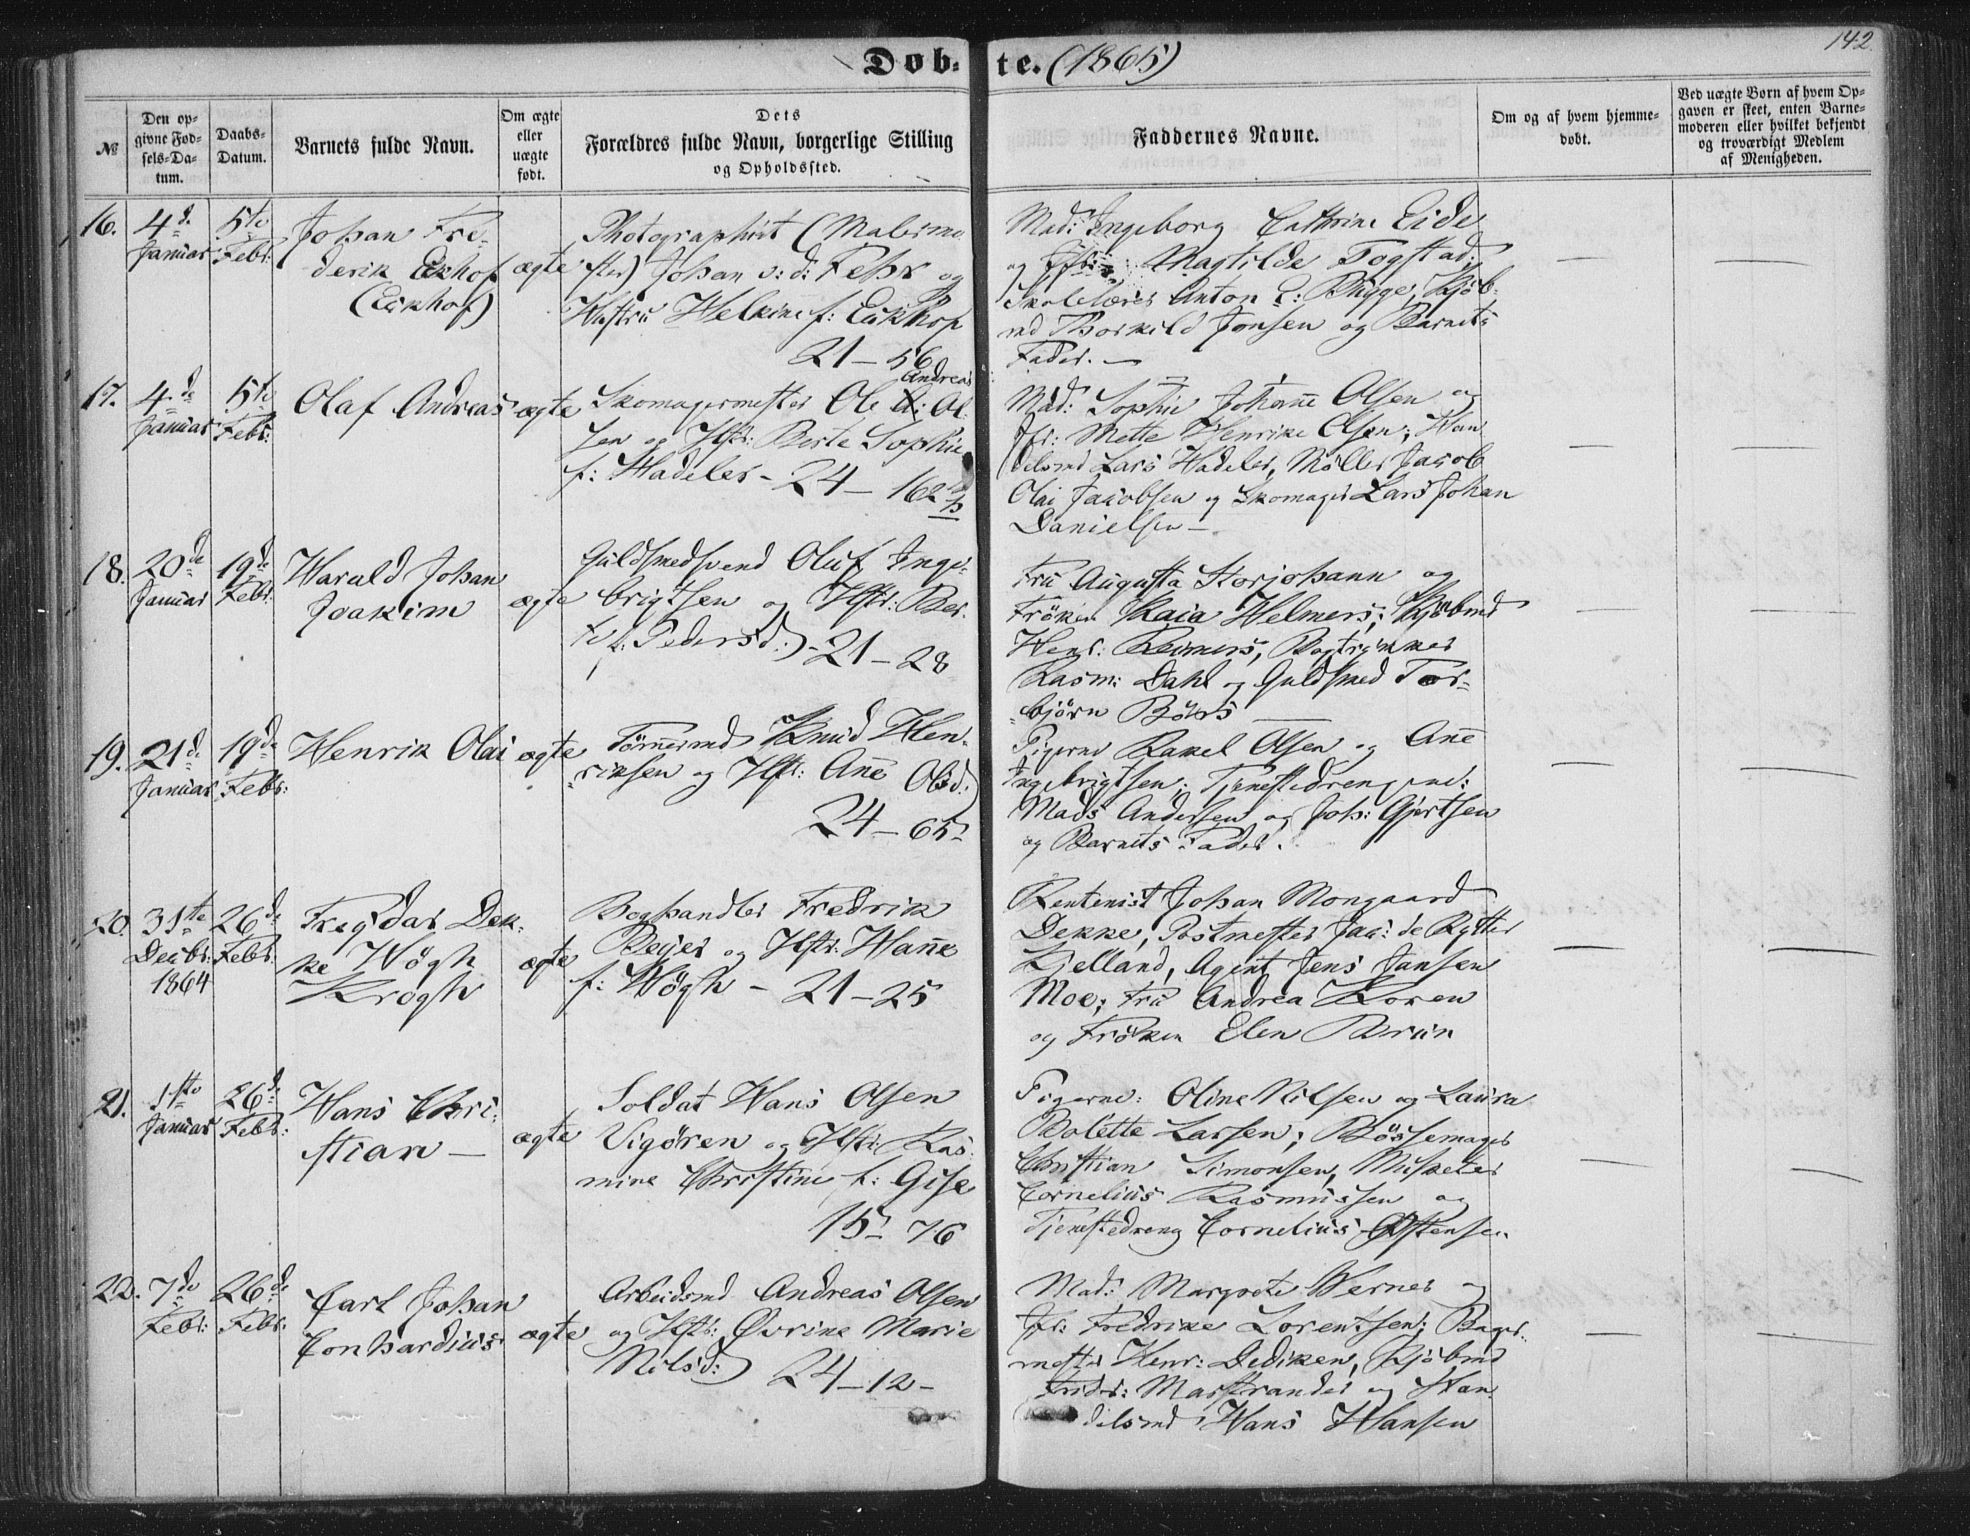 142
Døb- te. (1865)
№
Den op-
givne Fød-
sels-Da-
tum.
Daabs-
Datum.
Barnets fulde Navn.
Om ægte
eller
uægte
født.
Dets
Forældres fulde Navn, borgerlige Stilling
og Opholdssted.
Faddernes Navne.
Om og af hvem hjemme-
døbt.
Ved uægte Børn af hvem Op-
gaven er skeet, enten Barne-
moderen eller hvilket bekjendt
og troværdigt Medlem
af Menigheden.
16.
4d.
Januar
5te
Febr:
Johan Fre-
derik Eckhof
(Eckhof)
ægte
Photographist (Malerme
ster) Johan v: d: Fehr og
Hustru Helkine f: Eckhof
21 – 56
Mad: Ingeborg Cathrine Eide
og Jfr: Magtilde Fogstad;
Skolelærer Anton C: Bugge, Kjøb-
md Thorkild Jonsen og Barnets
Fader. —
17.
4de
Januar
5te
Febr:
Olaf Andreas
ægte
Andreas
Skomagermester Ole A: Ol-
sen og Hstr: Berte Sophie
f: Hadeler - 24 – 162 b
Mad: Sophie Johanne Olsen og
Jfr: Mette Henrike Olsen; Han
delsmd Lars Hadeler, Møller Jacob
Olai Jacobsen og Skomager Lars Johan
Danielsen —
18.
20de
Januar
19de
Febr:
Harald Johan
Joakim
ægte
Guldsmedsvend Oluf Inge-
brigtsen og Hstr: Ber-
te f. Pedersd:) - 21 – 28
Fru Augusta Storjohann og
Frøken Kaia Helmers; Kjøbmd
Henr: Reimers, Bogtrykker
Rasm: Dahl og Guldsmed Tor-
bjørn Börs —
19.
21d.
Januar
19de
Febr:
Henrik Olai
ægte
Tømmermd Knud Hen-
riksen og Hstr: Ane Olsd.)
24 – 65
Pigerne Rakel Olsen og Ane
Ingebrigtsen; Tjenestedrengene:
Mads Andersen og Joh: Gjertsen
og Barnets Fader.
20.
31te
Decbr:
1864
26de
Febr:
Fregdar Dek-
ke Høgh
Krogh
ægte
Boghandler Fredrik
Beyer og Hstr: Hanne
f: Høgh – 21 – 25
Rentenist Johan Mongaard
Dekke, Postmester Jac: de Rytter
Kjelland, Agent Jens Jansen
Moe; Fru Andrea Koren
og Frøken Elen Brun
21.
1ste
Januar
26d.
Febr:
Hans Chri-
stian —
ægte
Soldat Hans Olsen
Vigøren og Hstr: Ras-
mine Christine f: Gise
15 – 76
Pigerne: Oline Nilsen og Laura
Bolette Larsen; Bøssemager
Christian Simonsen, Musketer
Cornelius Rasmussen og
Tjenestedreng Cornelius Østensen
22.
7de
Febr:
26de
Febr:
Carl Johan
Conhardius
ægte
Arbeidsmd Andreas Olsen
og Hstr: Øvrine Marie
Nilsd:) 24 – 12 –
Mad: Margrete Werner og
Jfr: Fredrike Lorentsen; Bager-
mester Henr: Dediken, Kjøbmd
Fredr: Marstrander og Han-
delsmd Hans Hansen